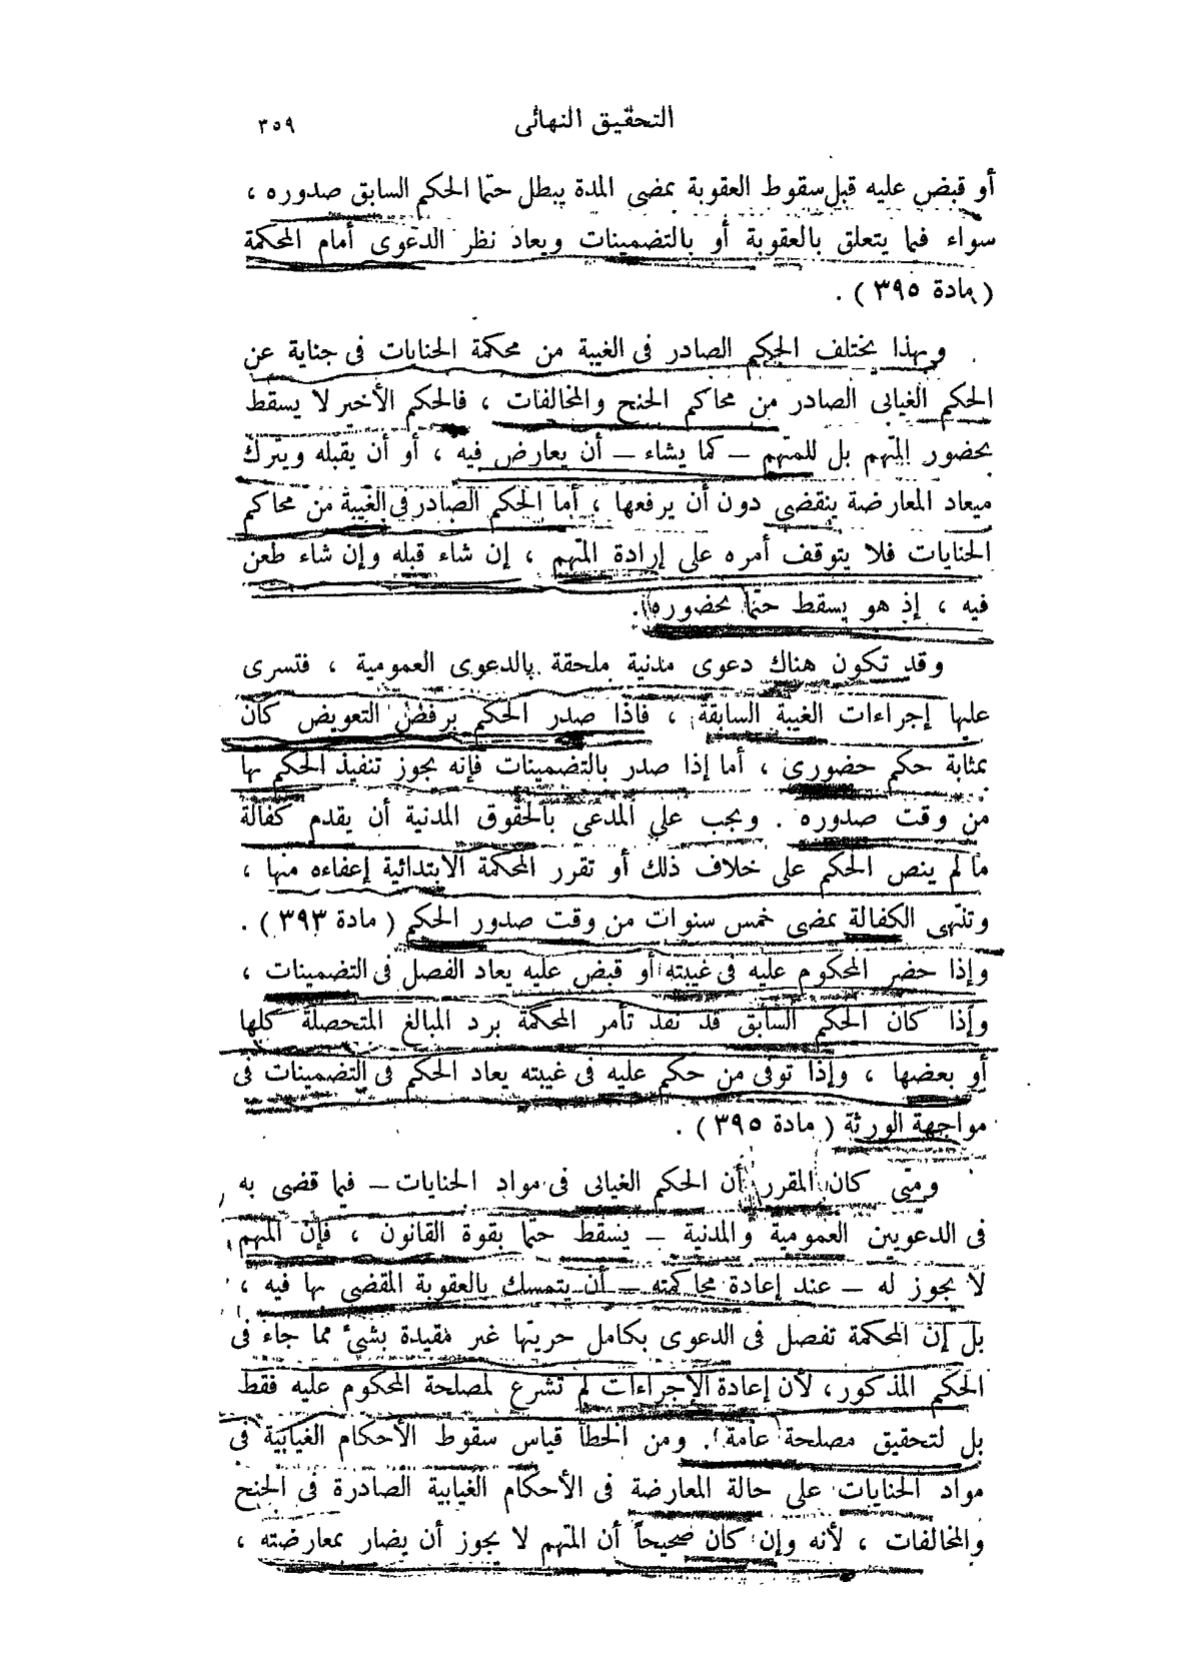 التحقيق النهائى ٣٥٩
أو قبض عليه قبل سقوط العقوبة بمضى المدة يبطل حتما الحكم السابق صدوره ،
سواء فيما يتعلق بالعقوبة أو بالتضمينات ويعاد نظر الدعوى أمام المحكمة
( مادة ٣٩٥ ) .
وبهذا يختلف الحكم الصادر فى الغيبة من محكمة الجنايات فى جناية عن
الحكم الغيابى الصادر من محاكم الجنح والمخالفات ، فالحكم الأخير لا يسقط
بحضور المتهم بل للمتهم – كما يشاء – أن يعارض فيه ، أو أن يقبله ويترك
ميعاد المعارضة ينقضى دون أن يرفعها ، أما الحكم الصادر فى الغيبة من محاكم
الجنايات فلا يتوقف أمره على إرادة المتهم ، إن شاء قبله وإن شاء طعن
فيه ، إذ هو يسقط حتما بحضوره .
وقد تكون هناك دعوى مدنية ملحقة بالدعوى العمومية ، فتسرى
عليها إجراءات الغيبة السابقة ، فاذا صدر الحكم برفض التعويض كان
بمثابة حكم حضورى ، أما إذا صدر بالتضمينات فإنه يجوز تنفيذ الحكم بها
من وقت صدوره . ويجب على المدعى بالحقوق المدنية أن يقدم كفالة
ما لم ينص الحكم على خلاف ذلك أو تقرر المحكمة الابتدائية إعفاءه منها ،
وتنتهى الكفالة بمضى خمس سنوات من وقت صدور الحكم ( مادة ٣٩٣ ) .
وإذا حضر المحكوم عليه فى غيبته أو قبض عليه يعاد الفصل فى التضمينات ،
وإذا كان الحكم السابق قد نفذ تأمر المحكمة برد المبالغ المتحصلة كلها
أو بعضها ، وإذا توفى من حكم عليه فى غيبته يعاد الحكم فى التضمينات فى
مواجهة الورثة ( مادة ٣٩٥ ) .
ومتى كان المقرر أن الحكم الغيابى فى مواد الجنايات – فيما قضى به
فى الدعويين العمومية والمدنية – يسقط حتما بقوة القانون ، فإن المتهم
لا يجوز له – عند إعادة محاكمته – أن يتمسك بالعقوبة المقضى بها فيه ،
بل إن المحكمة تفصل فى الدعوى بكامل حريتها غير مقيدة بشئ مما جاء فى
الحكم المذكور ، لأن إعادة الإجراءات لم تشرع لمصلحة المحكوم عليه فقط
بل لتحقيق مصلحة عامة . ومن الخطأ قياس سقوط الأحكام الغيابية فى
مواد الجنايات على حالة المعارضة فى الأحكام الغيابية الصادرة فى الجنح
والمخالفات ، لأنه وإن كان صحيحاً أن المتهم لا يجوز أن يضار بمعارضته ،